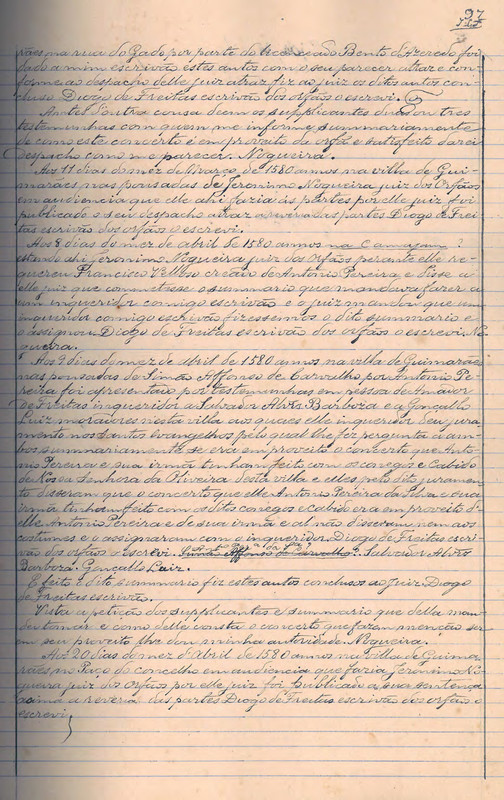 97
rães na rua do Gado por parte do licenceado Bento d'Azeredo foi
dado a mim escrivão estes autos com o seu parecer atraz e con-
forme ao despacho delle juiz atraz fiz ao juiz os ditos autos con-
cluso. Diogo de Freitas escrivão dos orfãos o escrevi.
Antes d'outra cousa deem os supplicantes duas ou tres
testemunhas com quem me informe summariamente
de como este concerto é em proveito da orfã e satisfeito darei
despacho como me parecer. Nogueira.
Aos 11 dias do mez de Março de 1580 annos na villa de Gui-
marães nas pousadas de Jeronimo Nogueira juiz dos Orfãos
em audiencia que elle ahi fazia ás partes por elle juiz foi
publicado o seu despacho atraz a reveria das partes Diogo de Frei-
tas escrivão dos orfãos o escrevi.
Aos 8 dias do mez de abril de 1580 annos na Camaçam?
estando ahi Jeronimo Nogueira juiz dos Orfãos perante elle re-
quereu Francisco Velloso creado de Antonio Pereira e disse a
elle juiz que comettesse o summario que mandava fazer a
um inqueridor comigo escrivão e o juiz mandou que um
inqueridor comigo escrivão fizessemos o dito summario e
o assignou Diogo de Freitas escrivão dos orfãos o escrevi. No-
gueira.
Aos 9 dias do mez de abril de 1580 annos na villa de Guimarães
nas pousadas de Simão Affonso de Carvalho por Antonio Pe-
reira foi apresentado por testemunhas em pessoa de Amador
de Freitas inqueridor a Salvador Alvrs Barboza e a Gonçallo
Luiz moradores nesta villa aos quaes elle inqueridor deu jura-
mento nos santos evangelhos pelo qual lhe fez pergunta a am-
bos summariamente se era em proveito o concerto que Anto-
nio Pereira e sua irmã tinham feito com os conegos e Cabido
de Nossa Senhora da Oliveira desta villa e elles pelo dito juramen-
to disseram que o concerto que elle Antonio Pereira da Silva e sua
irmã tinham feito com os ditos conegos e cabido era em proveito d'
elle Antonio Pereira e de sua irmã e al não disseram nem aos
costumes e o assignaram com o inqueridor. Diogo de Freitas escri-
vão dos orfãos o escrevi. Simão Affonso de Carvalho? Salvador Alvrs
Barboza. Gonçallo Luiz.
E feito o dito summario fiz estes autos conclusos ao Juiz. Diogo
de Freitas escrivão.
Vista a petição dos supplicantes e summario que della man-
dei tomar e como delle consta o concerto que fazem menção ser
em seu proveito lhe dou minha autoridade Nogueira.
Aos 20 dias do mez d'Abril de 1580 annos na villa de Guima-
rães no Paço do concelho em audiencia que fazia Jeronimo No-
gueira juiz dos Orfãos por elle juiz foi publicada a sua sentença
acima a reveria das partes Diogo de Freitas escrivão dos orfãos o
escrevi